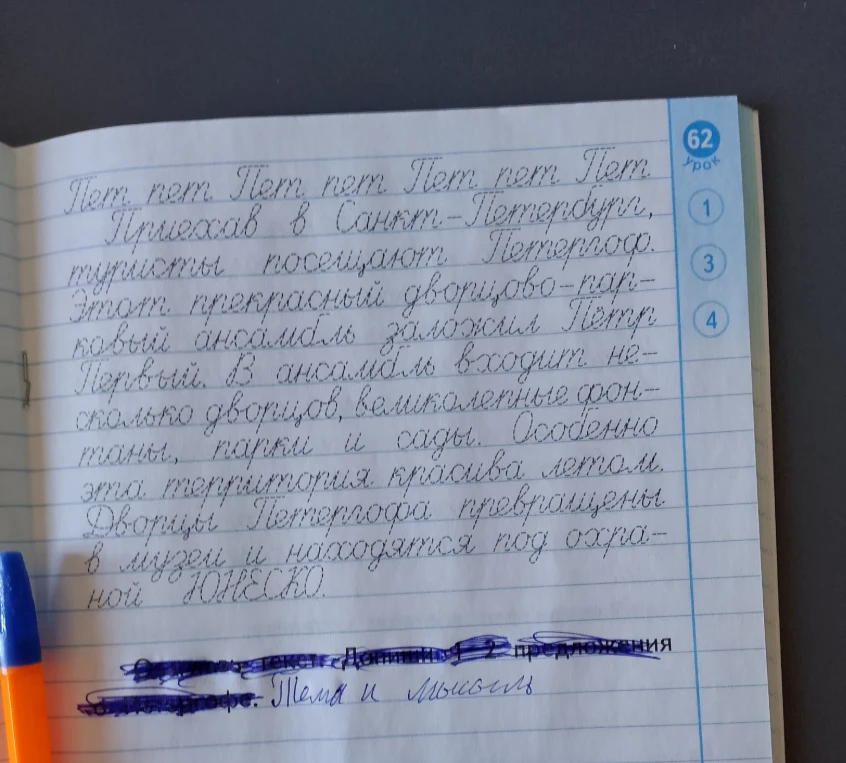 62
урок
1
3
4
Пет пет Пет пет Пет пет Пет
Приехав в Санкт-Петербург,
туристы посещают Петергоф.
Этот прекрасный дворцово-пар-
ковый ансамбль заложил Пётр
Первый. В ансамбль входит не-
сколько дворцов, великолепные фон-
таны, парки и сады. Особенно
эта территория красива летом.
Дворцы Петергофа превращены
в музеи и находятся под охра-
ной ЮНЕСКО.
текст. Допиши 1-2 предложения
о Петергофе. Тема и мысль